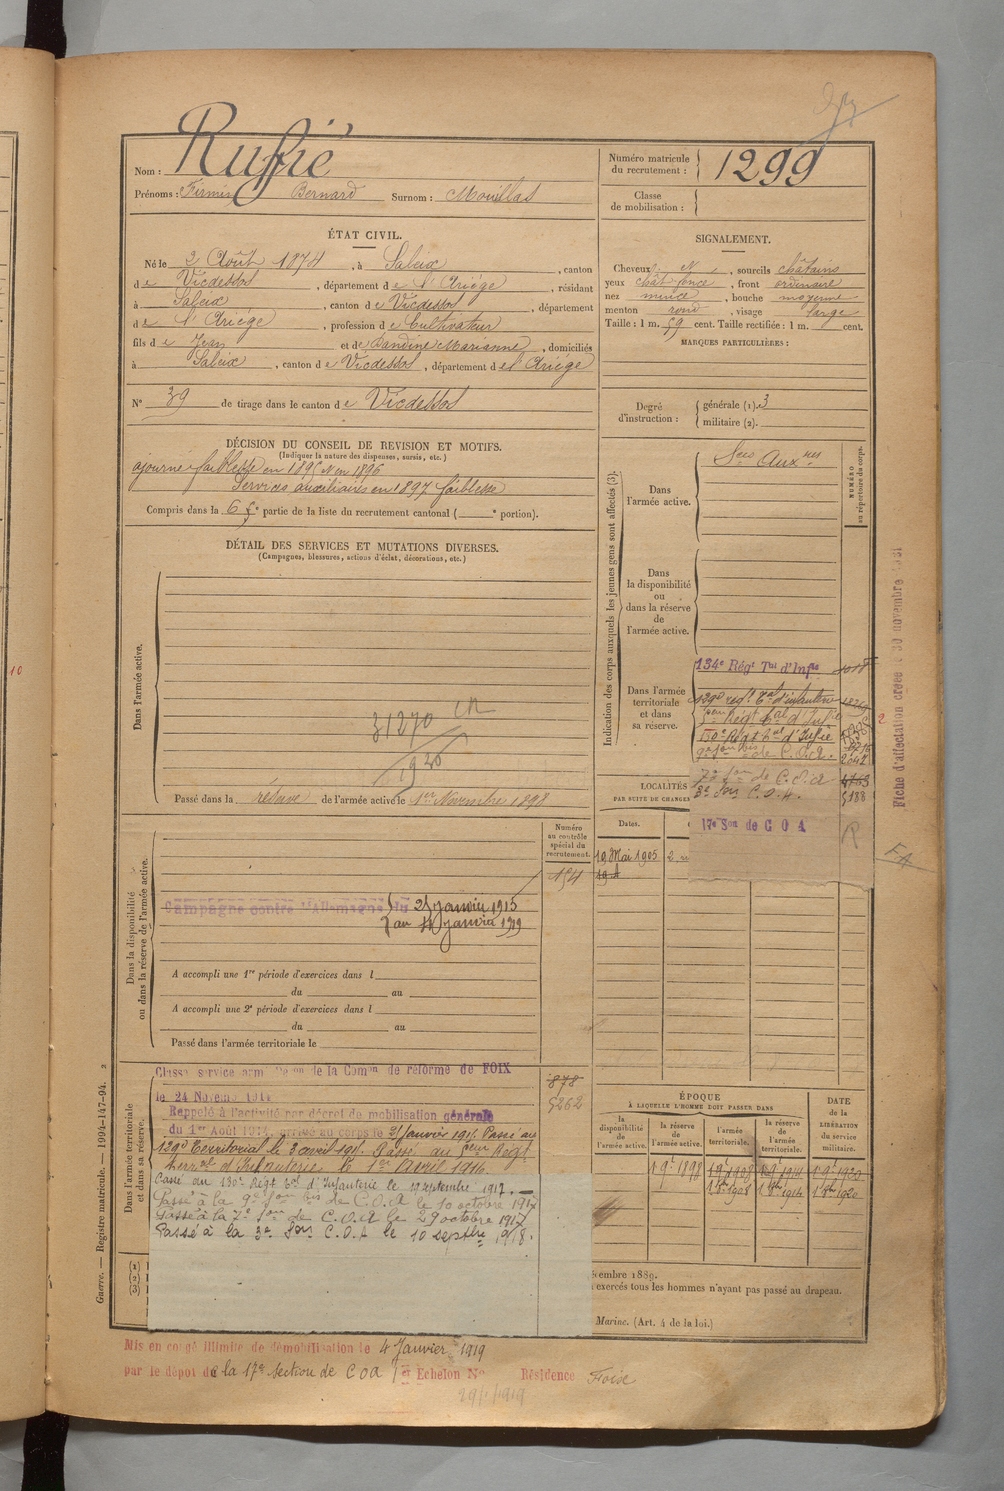 Nom : Ruffié
Prénoms : Firmin Bernard Surnom : Mouillat
ÉTAT CIVIL.
Né le 2 Août 1874, à Saleix, canton
de Vicdessos, département de l'Ariége, résidant
à Saleix, canton de Vicdessos, département
de l'Ariége, profession de Cultivateur
fils de Jean et de Dandine Marianne, domiciliés
à Saleix, canton de Vicdessos, département de l'Ariége
N° 39 de tirage dans le canton de Vicdessos
DÉCISION DU CONSEIL DE REVISION ET MOTIFS.
(Indiquer la nature des dispenses, sursis, etc.)
ajourné faiblesse en 1895 N en 1896
Services auxiliaires en 1897 faiblesse
Compris dans la 6e partie de la liste du recrutement cantonal ( e portion).
DÉTAIL DES SERVICES ET MUTATIONS DIVERSES.
(Campagnes, blessures, actions d'éclat, décorations, etc.)
Dans l'armée active.
31270
1926
Passé dans la réserve de l'armée active le 1er Novembre 1898
Numéro
au contrôle
spécial du
recrutement.
154
Dans la disponibilité
ou dans la réserve de l'armée active.
Campagne contre l'Allemagne du 21 janvier 1915
au 4 janvier 1919
A accompli une 1re période d'exercices dans l
du au
A accompli une 2e période d'exercices dans l
du au
Passé dans l'armée territoriale le
878
5262
Dans l'armée territoriale
et dans sa réserve.
Classé service armé de la Comon de réforme de FOIX
le 24 Novemb 1914
Rappelé à l'activité par décret de mobilisation générale
du 1er Août 1914, arrivé au corps le 21 Janvier 1915. Passé au
129e Territorial le 3 avril 1915. Passé au 5eme Régt
terral d'Infanterie le 1er Avril 1916.
Passé au 130e Régt tal d'Infanterie le 19 septembre 1917.
Passé à la 9e Son bis de C.O.A le 10 octobre 1917
Passé à la 7e Son de C.O.A le 29 octobre 1917
Passé à la 3e Son C.O.A le 10 septbre 1918.
Mis en congé illimité de démobilisation le 4 Janvier 1919
par le dépot de la 17e section de COA 1er Echelon N° Résidence Foixe
29/1/1919
Guerre. — Registre matricule. — 1994-147-94. 2
Numéro matricule
du recrutement : 1299
Classe
de mobilisation :
SIGNALEMENT.
Cheveux N, sourcils châtains
yeux chât foncé, front ordinaire
nez mince, bouche moyenne
menton rond, visage large
Taille : 1 m. 59 cent. Taille rectifiée : 1 m. cent.
MARQUES PARTICULIÈRES :
Degré
d'instruction :
générale (1). 3
militaire (2).
Indication des corps auxquels les jeunes gens sont affectés (3).
NUMÉRO
au répertoire du corps.
Dans
l'armée active.
Sces Auxres
Dans
la disponibilité
ou
dans la réserve
de
l'armée active.
Dans l'armée
territoriale
et dans
sa réserve.
134e Régt Tal d'Infie
129e régt Tal d'infanterie
5eme Régt Tal d'Infie
130e Régt Tal d'Infie
9e Son bis de C.O.A. 2042
7e Son de C.O.A 4763
3e Son C.O.A. 5188
17e Son de C O A
LOCALITÉS
PAR SUITE DE CHANGE
Dates.
19 Mai 1905
Fiche d'affectation créée le 30 novembre 1931
ÉPOQUE
À LAQUELLE L'HOMME DOIT PASSER DANS
la
disponibilité
de
l'armée active.
la réserve
de
l'armée active.
l'armée
territoriale.
la réserve
de
l'armée
territoriale.
DATE
de la
LIBÉRATION
du service
militaire.
1 9e 1898 1 9e 1908 1 9e 1914 1 9e 1920
1 8e 1908 1 8e 1914 1 8e 1920
embre 1889.
exercés tous les hommes n'ayant pas passé au drapeau.
Marine. (Art. 4 de la loi.)
10